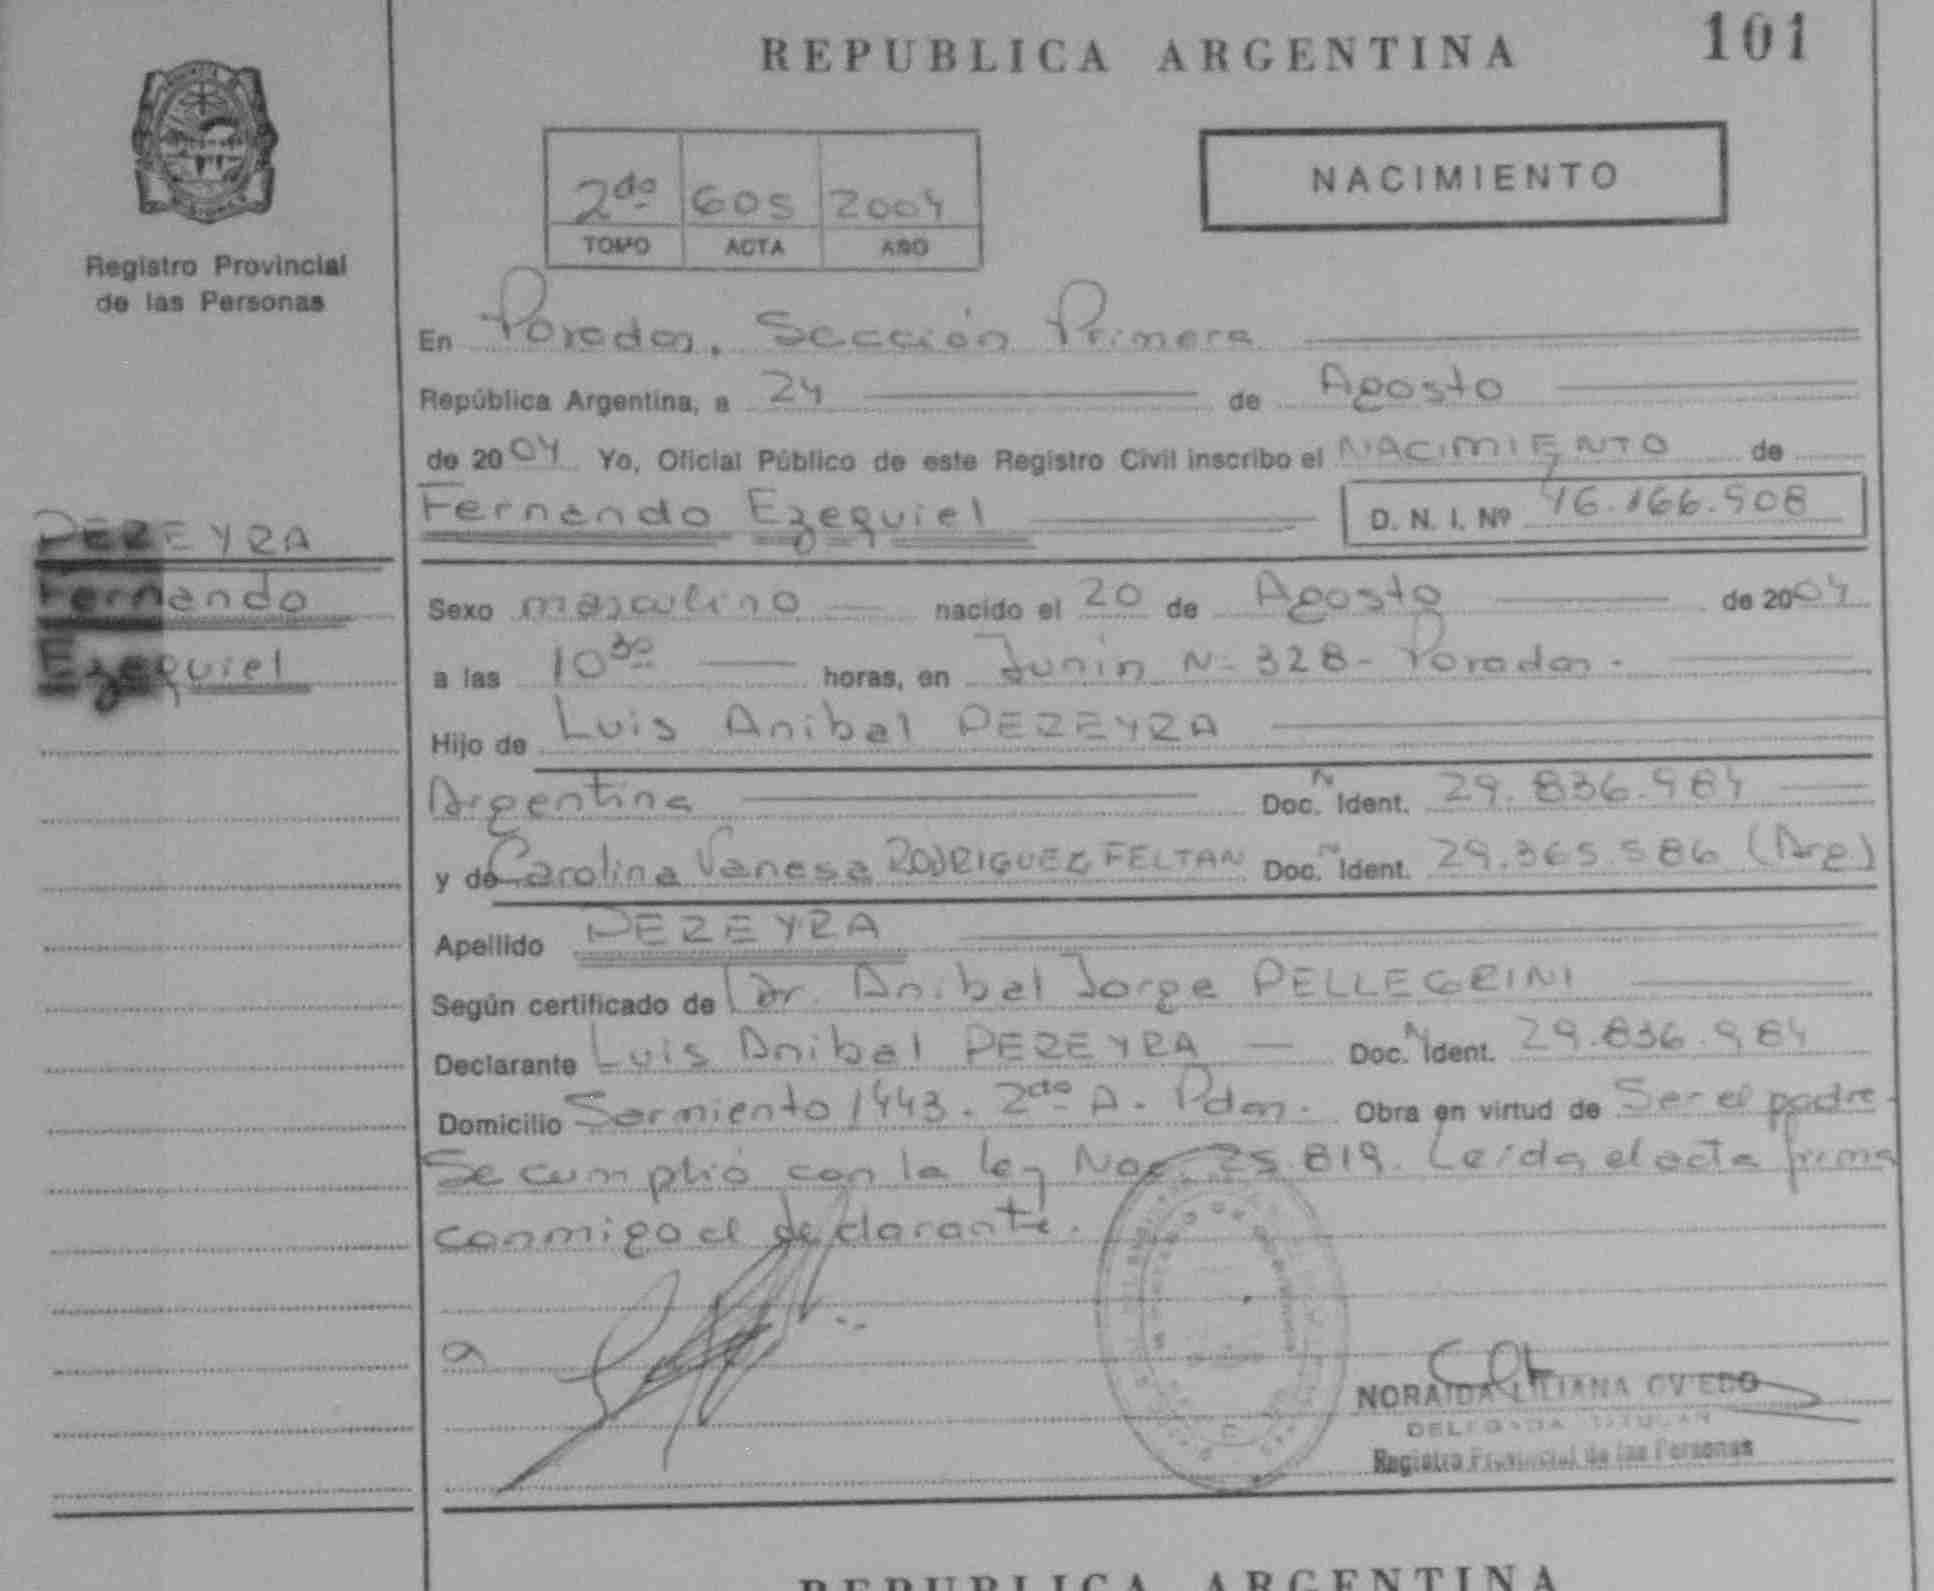 REPUBLICA ARGENTINA 101
Registro Provincial
de las Personas
2do 605 2004
TOMO ACTA AÑO
NACIMIENTO
En Posadas, Sección Primera
República Argentina, a 24 de Agosto
de 2004 Yo, Oficial Público de este Registro Civil inscribo el NACIMIENTO de
Fernando Ezequiel D. N. I. Nº 46.166.908
PEREYRA
Fernando
Ezequiel
Sexo masculino nacido el 20 de Agosto de 2004
a las 10 30 horas, en Junin Nº 328 - Posadas.
Hijo de Luis Anibal PEREYRA
Argentina Doc. N Ident. 29.836.984
y de Carolina Vanesa RODRIGUEZ FELTAN Doc. N Ident. 29.365.586 (Arg)
Apellido PEREYRA
Según certificado de Dr. Anibal Jorge PELLEGRINI
Declarante Luis Anibal PEREYRA Doc. N Ident. 29.836.984
Domicilio Sarmiento 1443. 2do A. Pdas. Obra en virtud de Ser el padre.
Se cumplió con la ley Nac 25.819. Leída el acta firma
conmigo el declarante.
NORAIDA LILIANA OVIEDO
DELEGADA TITULAR
Registro Provincial de las Personas
REPUBLICA ARGENTINA